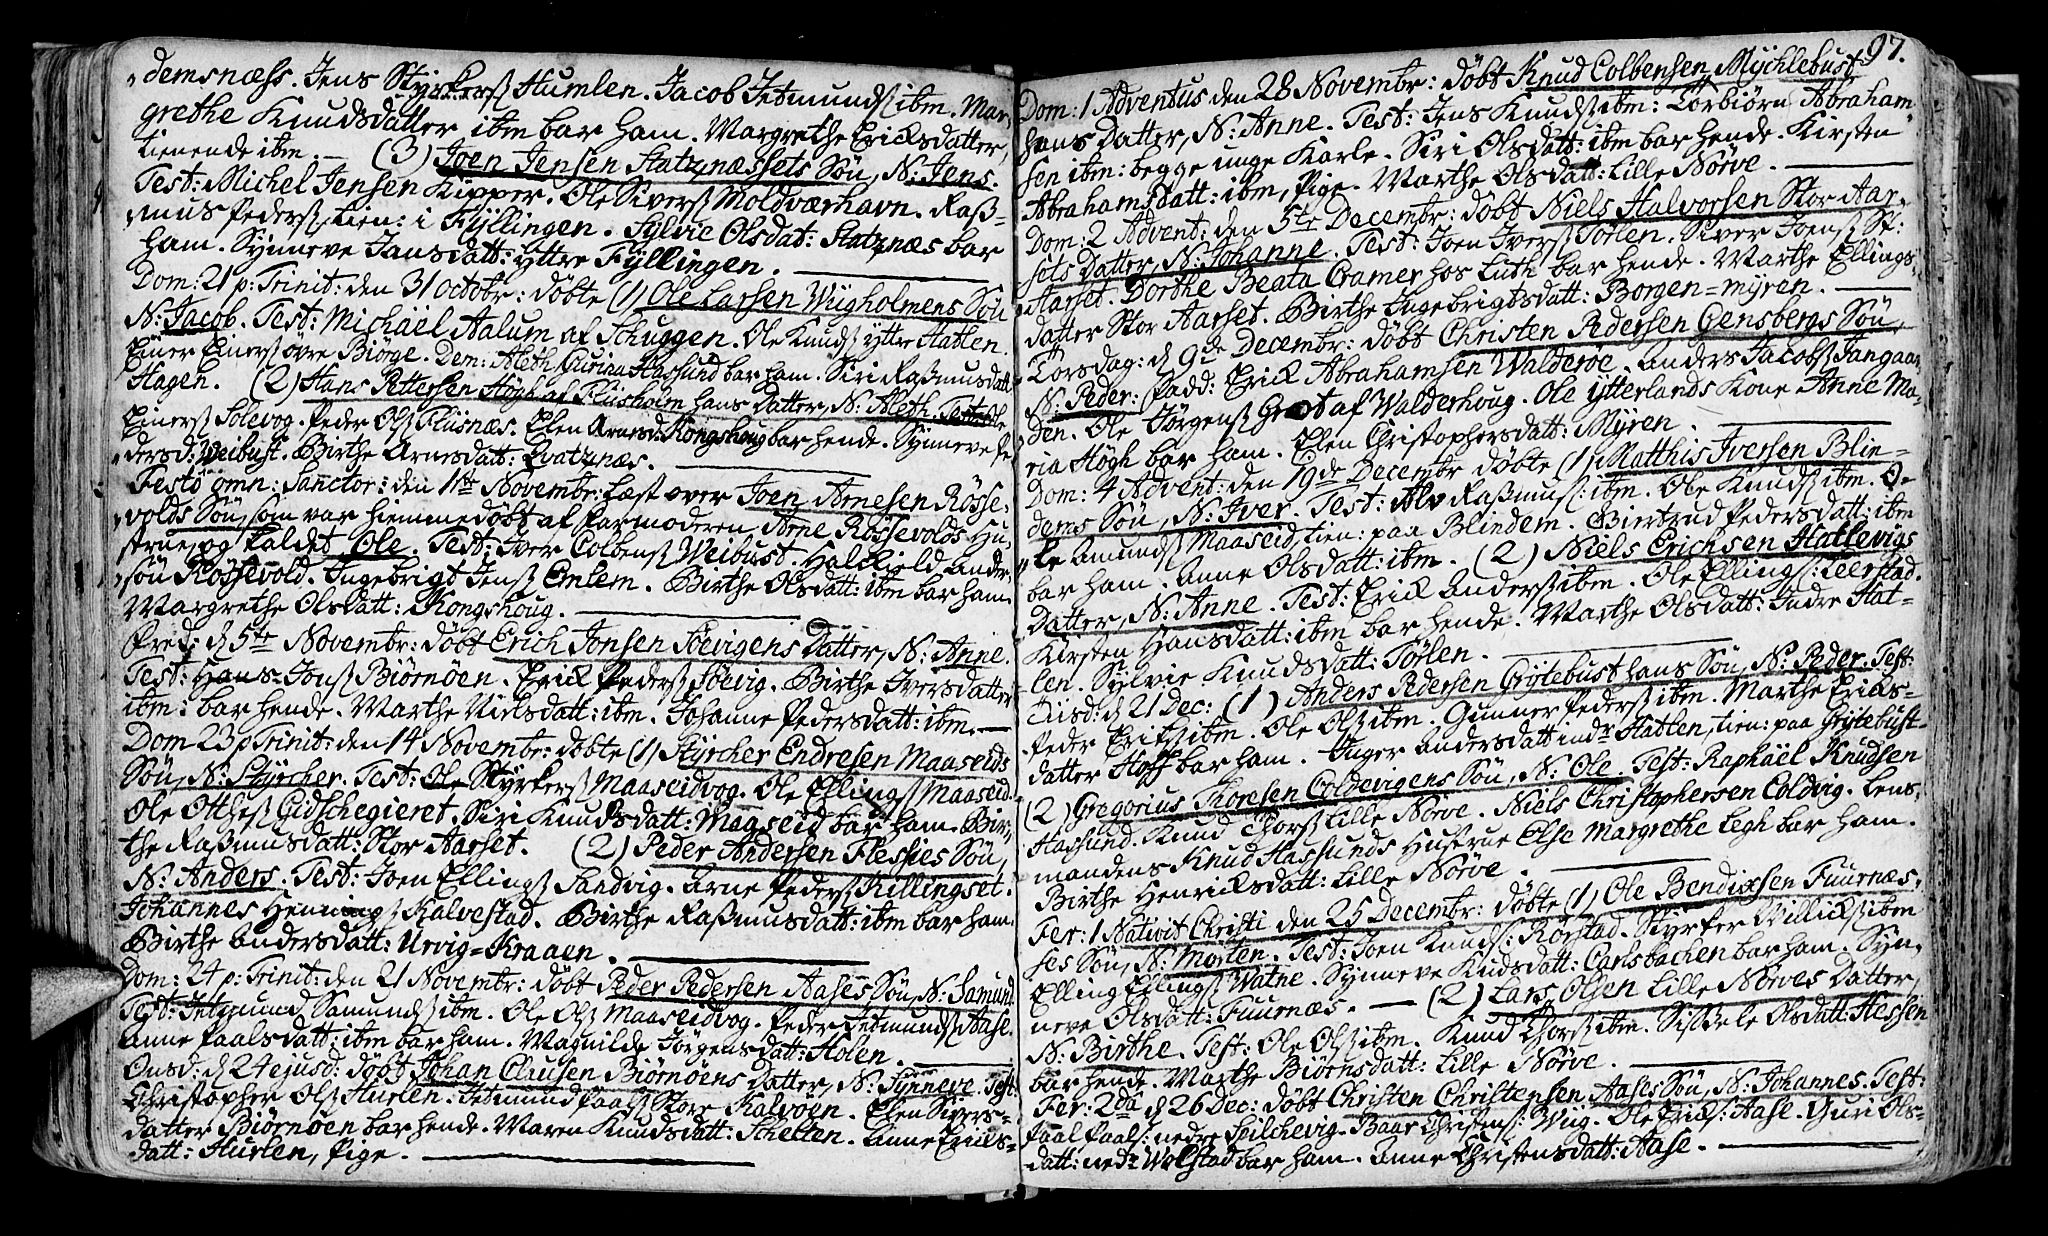 demsnæhs. Jens Styrkerß Humlen. Jacob Jetmundß ibm. Mar-
grethe Knudsdatter ibm bar ham. Margrethe Ericksdatter,
tienende ibm. — (3) Joen Jensen Statznæssets Søn, N: Jens.
Test: Michel Jensen Kipper. Ole Siverß Moldværhavn. Raß-
mus Pederß, tien: i Fÿllingen. Sylvie Olsdat: Statznæs bar
ham. Synneve Jansdatt: ÿttre Fÿllingen.
Dom: 21 p: Trinit: den 31 octobr: døbte (1) Ole Larsen Wiigholmens Søn
N: Jacob. Test: Michäel Aalum af Schuggen. Ole Knudß ÿttre Hatlen.
Einer Einerß øvre Biørge. Dem: Aleth Curina Hasund bar ham. Siri Raßmusdatt:
Hagen. (2) Hans Pettersen Høgh af Fluisholm hans Datter, N: Aleth. Test: Ole
Einerß Solevog. Peder Olß Fluisnæs. Elen Arnesd: Kongshoug bar hende. Synneve Pe-
dersd: Weibust. Birthe Arnesdatt: Qvatznæs.
Festo omn: Sanctor: den 1ste Novembr: læst over Joen Arnesen Røsse-
volds Søn, som var hiemmedøbt af Farmoderen Arne Røssevolds Hu-
strue, og kaldet Ole. Test: Iver Colbenß Weibust. Haldkield Ander-
søn Røssevold. Ingebrigt Jenß Emlem. Birthe Olsdatt: ibm bar ham.
Margrethe Olsdatt: Kongshoug.
Fred: d 5te Novembr: døbt Erich Jonsen Søevigens Datter, N: Anne.
Test: Hans Jonß Biørnøen. Erick Pederß Søevig. Birthe Iversdatter
ibm: bar hende. Marthe Nielsdatt: ibm. Johanne Pedersdatt: ibm.
Dom 23 p Trinit: den 14 Novembr: døbte (1) Styrcher Endresen Maaseids
Søn, N: Styrcher. Test: Ole Styrkerß Maaseidvog. Ole Ellingß Maaseid.
Ole Ottheß Gidschegieret. Siri Knudsdatt: Maaseid bar ham. Bir-
the Raßmusdatt: Stor Aarset. (2) Peder Andersen Flessies Søn,
N: Anders. Test: Joen Ellingß Sandvig. Arne Pederß Killingset.
Johannes Henningß Kalvestad. Birthe Raßmusdatt: ibm bar ham.
Birthe Andersdatt: Urvig=Kraaen.
Dom: 24 p: Trinit: den 21 Novembr: døbt Peder Pedersen Aases Søn, N: Samund.
Test: Jetzmund Samundß ibm. Ole Olß Maaseidvog. Peder Jetmundß Aase.
Anne Paalsdatt: ibm bar ham. Magnilde Jørgensdatt: Holen.
Onsd: d 24 ejusd: døbt Johan Clausen Biørnøens datter, N: Synneve. Test:
Christopher Olß Hurlen. Jetmund Paalß Store Kalvøen. Elen Sivers-
datter Biørnøen bar hende. Maren Knudsdatt: Schelten. Anne Ericks-
datt: Hurlen, Pige.
97.
Dom: 1 Adventus den 28 Novembr: døbt Knud Colbensen Mÿchlebust
hans Datter, N: Anne. Test: Jens Knudß ibm: Torbiørn Abraham-
sen ibm: begge unge Karle. Siri Olsdatt: ibm bar hende. Kirsten
Abrahamsdatt: ibm, Pige. Marthe Olsdatt: Lille Nørve.
Dom: 2 Advent: den 5te Decembr: døbt Niels Halvorsen Stor Aar-
sets Datter, N: Johanne. Test: Joen Iverß Tørlen. Siver Joenß St:
Aarset. Dorthe Beata Cramer hos Luth bar hende. Marthe Ellings-
datter Stor Aarset. Birthe Ingebrigtsdatt: Borgen=mÿren.
Torsdag: d 9de Decembr: døbt Christen Pedersen Gensbergs Søn,
N: Peder: Fadd: Erick Abrahamsen Walderøe. Anders Jacobß Tangaar-
den. Ole Jørgenß Grot af Walderhoug. Ole Ÿtterlands Kone Anne Ma-
ria Høgh bar ham. Elen Christophersdatt: Mÿren.
Dom: 4 Advent: den 19de Decembr døbte (1) Matthis Iversen Blin-
dems Søn, N: Iver. Test: Alv Raßmusß: ibm. Ole Knudß ibm. O-
le Amundß Maaseid, tien: paa Blindem. Giertrud Pedersdatt: ibm
bar ham. Anne Olsdatt: ibm. (2) Niels Erichsen Hatlevigs
Datter, N: Anne. Test: Erick Anderß ibm. Ole Ellingß: Leerstad.
Kirsten Hansdatt: ibm bar hende. Marthe Olsdatt: Indre Hat-
len. Sylvie Knudsdatt: Tørlen.
Tiisd: d 21 Dec: (1) Anders Pedersen Grÿtebust hans Søn, N: Peder. Test:
Peder Erickß ibm. Ole Olß ibm. Gunner Pederß ibm. Marthe Ericks-
datter Hoff bar ham. Inger Andersdatt indr Hatlen, tien: paa Grÿtebust.
(2) Gregorius Thoresen Coldevigens Søn, N: Ole. Test: Raphäel Knudsen
Hassund. Knud Thorß Lille Nørve. Niels Christophersen Coldvig. Lens-
mandens Knud Hassunds Hustrue Else Margrethe Legh bar ham.
Birthe Henricksdatt: Lille Nørve.
Fer: 1 Nativit Christi den 25 Decembr: døbte (1) Ole Bendixsen Fuurnæs-
ses Søn, N: Morten. Test: Joen Knudß: Rørstad. Styrker Willickß ibm
Elling Ellingß Watne. Synneve Knudsdatt: Carlsbachen bar ham. Syn-
neve Olsdatt: Fuurnæs. — (2) Lars Olsen Lille Nørves Datter,
N: Birthe. Test: Ole Olß ibm. Knud Thorß ibm. Sißele Olsdatt: Hessen
bar hende. Marthe Biørnsdatt: Lille Nørve.
Fer: 2da d 26 Dec: døbt Christen Christensen Aases Søn, N: Johannes. Test:
Paal Paalß: nedre Spilchevig. Baar Christenß: Wiig. Ole Erickß: Aase. Guri Ols-
datt: nedr Wolstad bar ham. Anne Christensdatt: Aase.